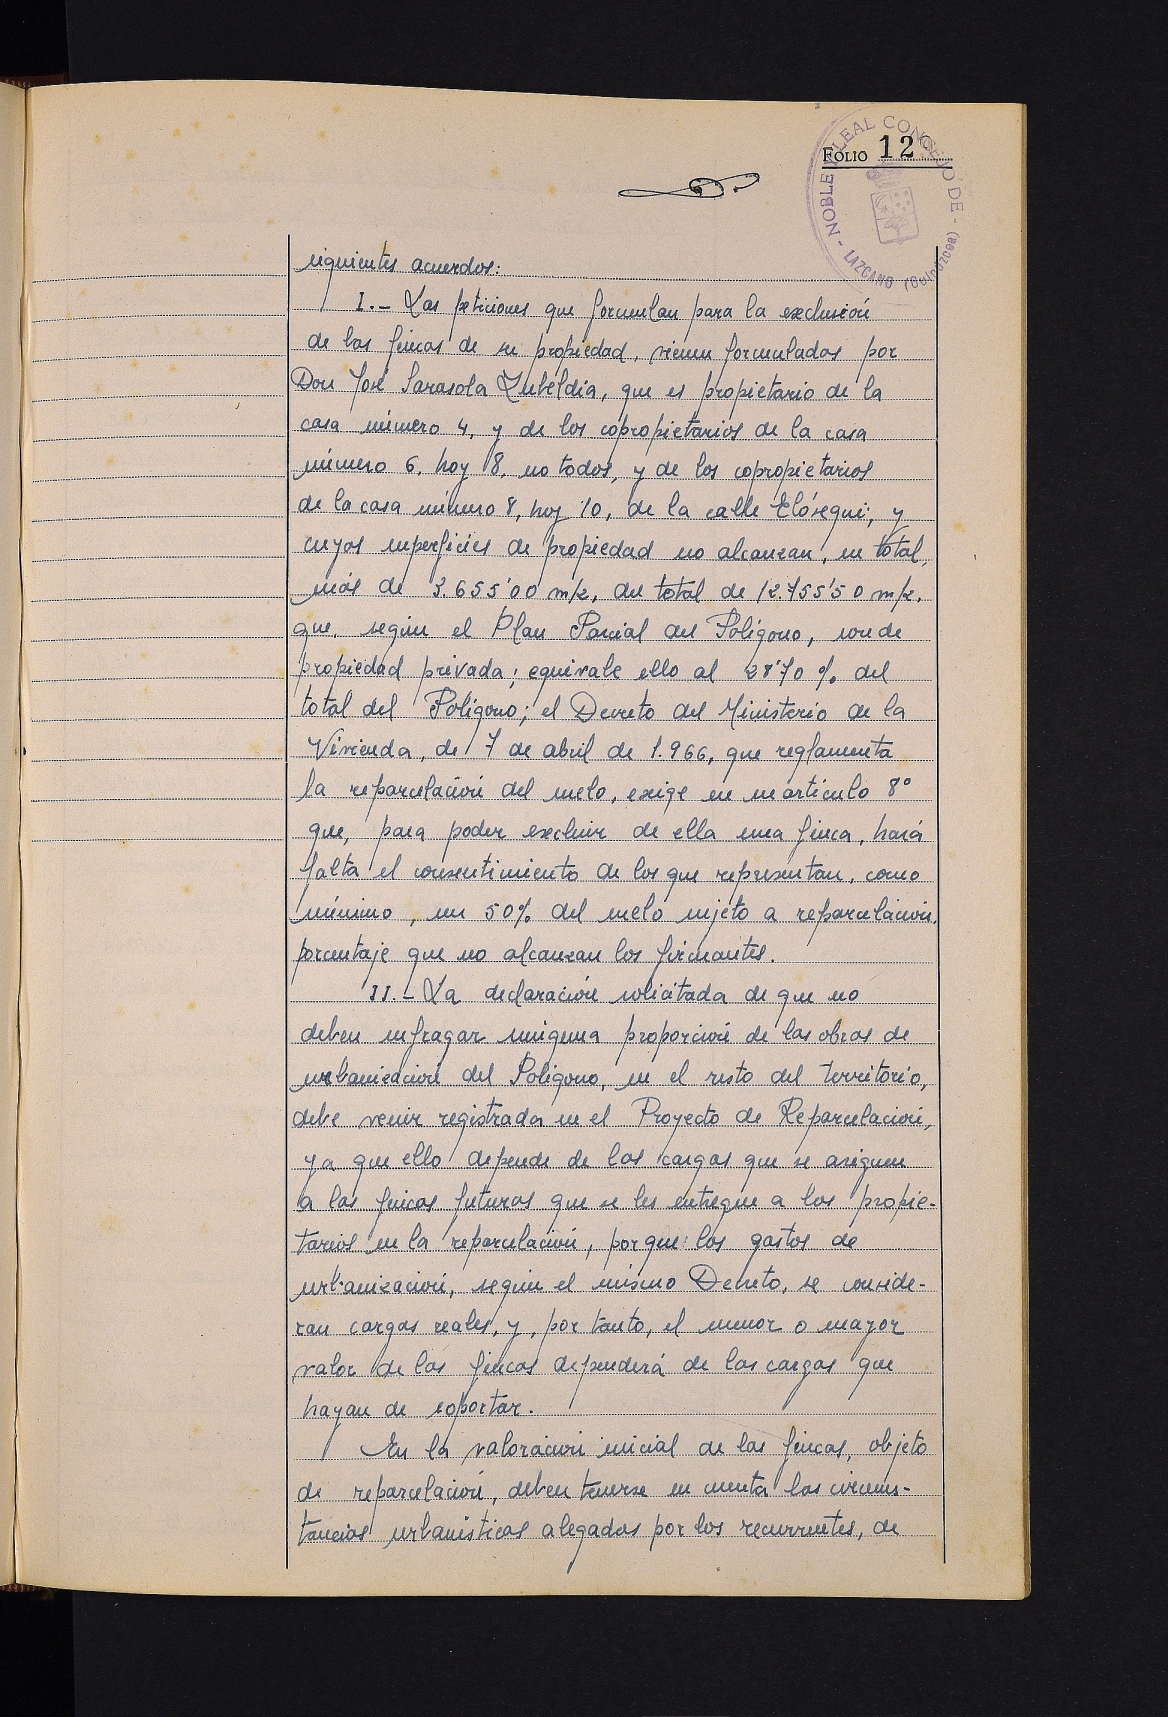 FOLIO 12
NOBLE Y LEAL CONCEJO DE - LAZCANO (Guipúzcoa) -
siguientes acuerdos:
I.- Las peticiones que formulan para la exclusión
de las fincas de su propiedad, vienen formuladas por
Don José Sarasola Zubeldia, que es propietario de la
casa número 4, y de los copropietarios de la casa
número 6, hoy 8, no todos, y de los copropietarios
de la casa número 8, hoy 10, de la calle Elósegui, y
cuyas superficies de propiedad no alcanzan, en total,
más de 3.655'00 m/2, del total de 12.755'50 m/2,
que, según el Plan Parcial del Polígono, son de
propiedad privada; equivale ello al 28'70 % del
total del Polígono; el Decreto del Ministerio de la
Vivienda, de 7 de abril de 1.966, que reglamenta
la reparcelación del suelo, exige en su artículo 8º
que, para poder excluir de ella una finca, hará
falta el consentimiento de los que representan, como
mínimo, un 50% del suelo sujeto a reparcelación,
porcentaje que no alcanzan los firmantes.
II.- La declaración solicitada de que no
deben sufragar ninguna proporción de las obras de
urbanización del Polígono, en el resto del territorio,
debe venir registrada en el Proyecto de Reparcelación,
ya que ello depende de las cargas que se asignen
a las fincas futuras que se les entregue a los propie-
tarios en la reparcelación, porque los gastos de
urbanización, según el mismo Decreto, se conside-
ran cargas reales, y, por tanto, el menor o mayor
valor de las fincas dependerá de las cargas que
hayan de soportar.
En la valoración inicial de las fincas, objeto
de reparcelación, deben tenerse en cuenta las circuns-
tancias urbanísticas alegadas por los recurrentes, de